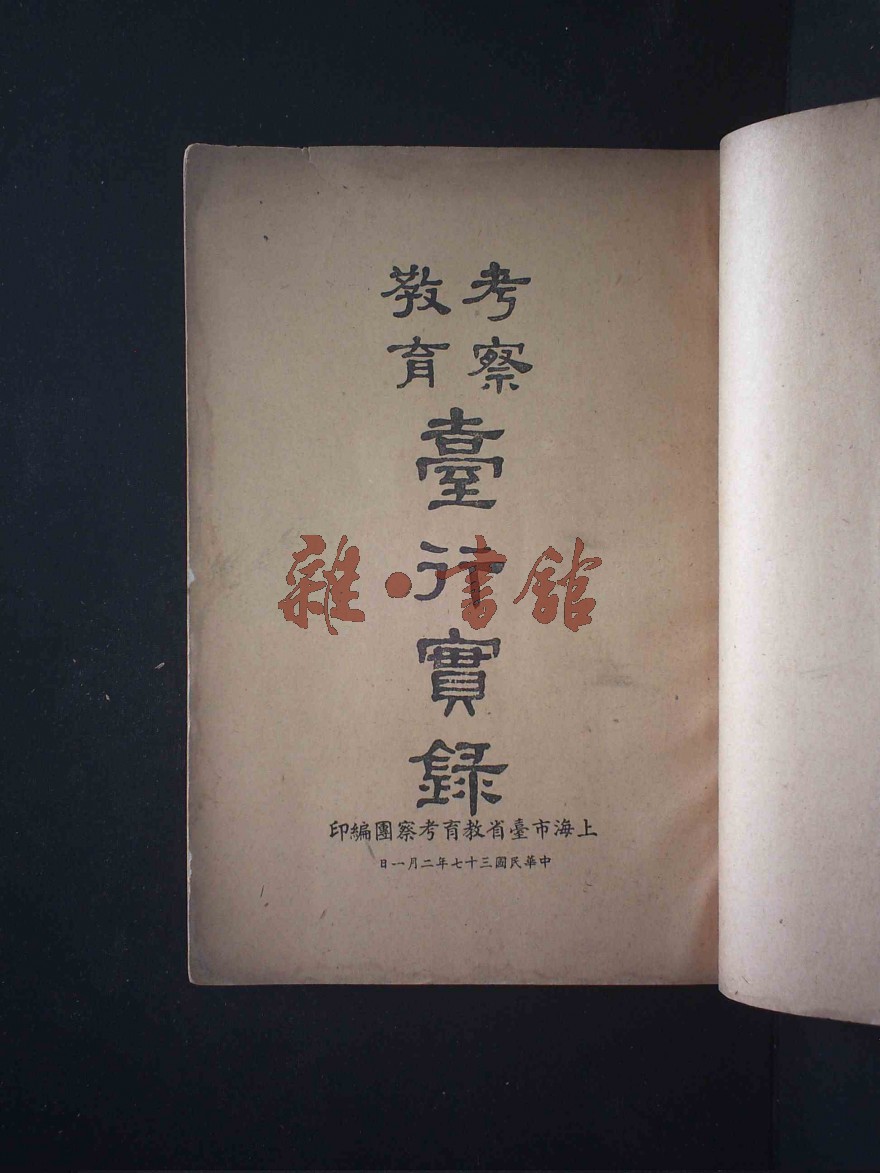 考察
教育
臺行實錄
上海市臺省教育考察團編印
中華民國三十七年二月一日
雜·書館